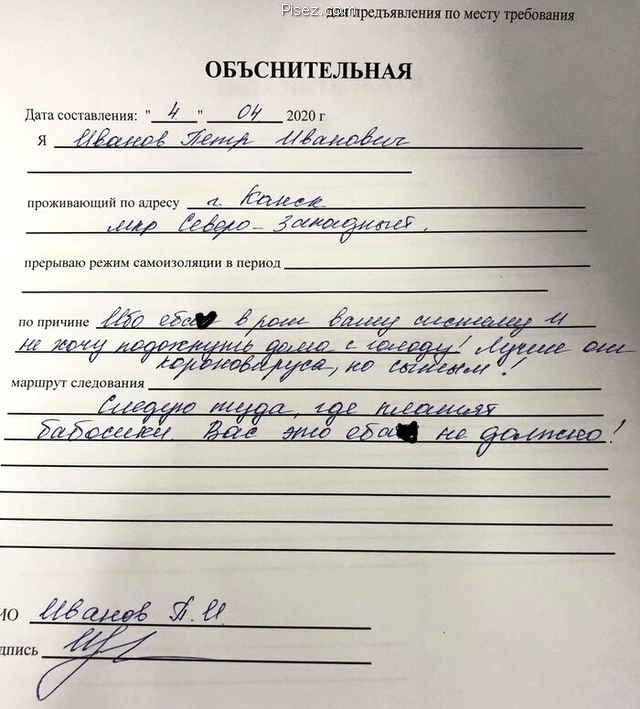 Pisez.com
для предъявления по месту требования
ОБЪСНИТЕЛЬНАЯ
Дата составления: "4" 04 2020 г
Я Иванов Петр Иванович
проживающий по адресу г. Канск
мкр Северо-Западный.
прерываю режим самоизоляции в период
по причине Ибо еба в рот вашу систему и
не хочу подохнуть дома с голоду! Лучше от
короновируса, но сытым!
маршрут следования
Следую туда, где платят
бабосики. Вас это еба не должно!
ИО Иванов П.И
дпись